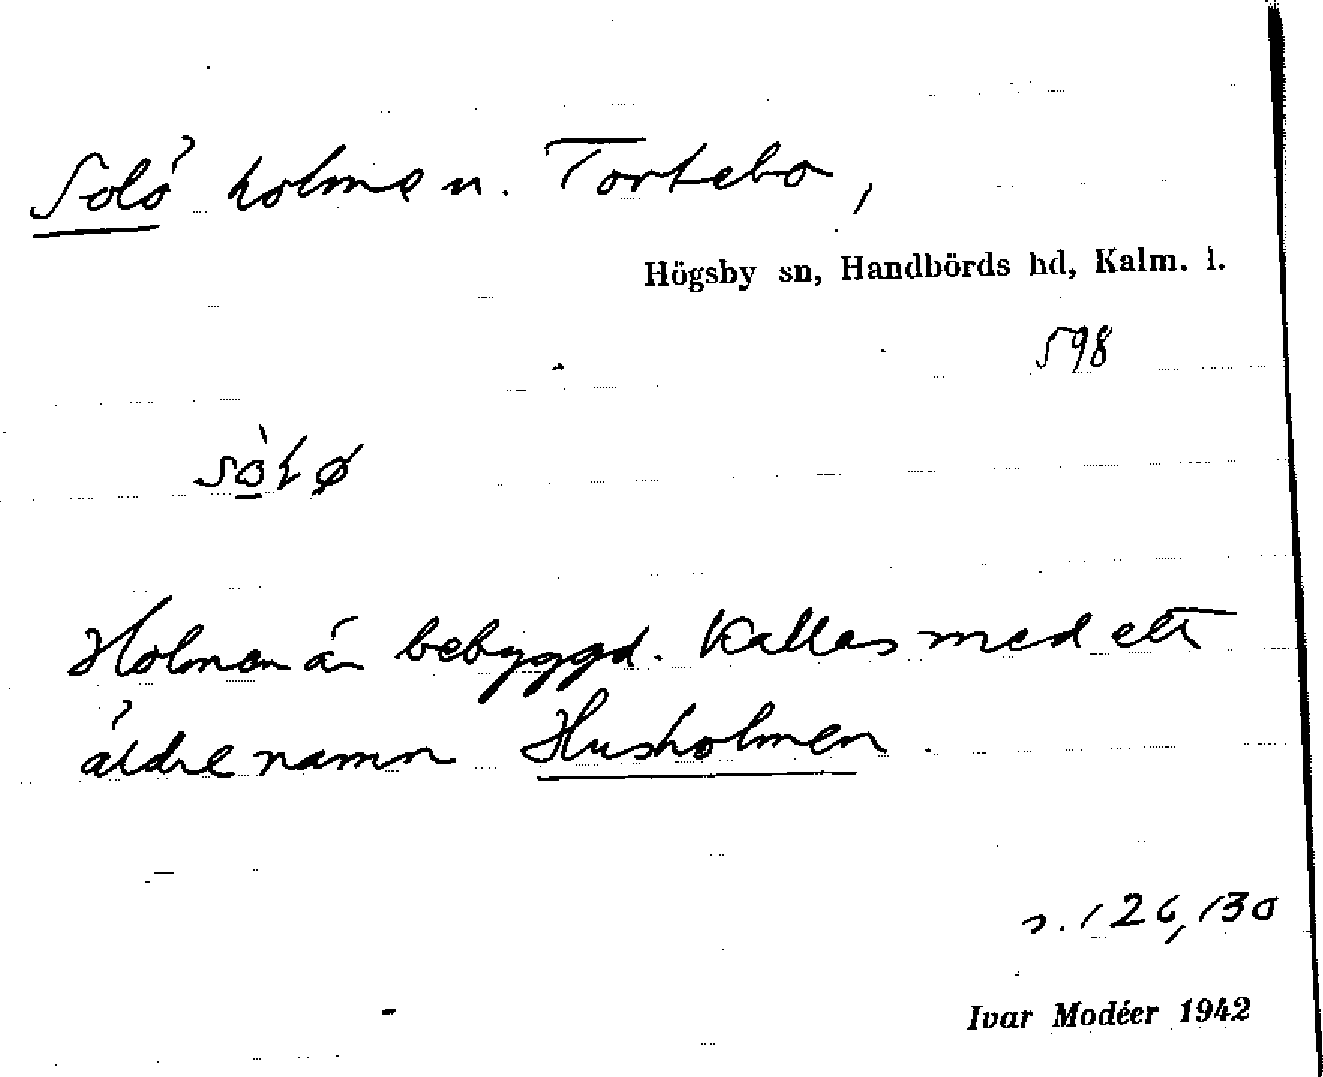 Solö holme n. Tortebo,
Högsby sn, Handbörds hd, Kalm. l.
598
Holmen är bebyggd. Kallas med ett
äldre namn Husholmen.
s. 126, 130
Ivar Modéer 1942